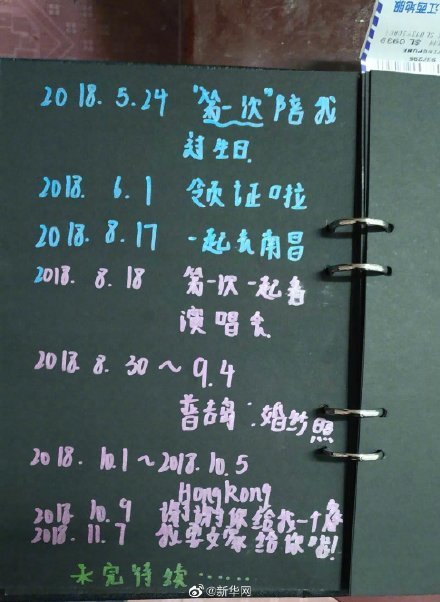 江西地服
SL 0939
2018.5.24 "第一次"陪我
过生日.
2018. 6.1 领证口拉
2018. 8.17 一起去南昌
2018. 8.18 第一次一起看
演唱会
2018. 8.30～9.4
普吉岛:婚纱照
2018. 10.1～2018.10.5
HongKong
2018. 10.9 谢谢你给我一个家
2018. 11.7 我要文家给你啦!
未完待续......
@新华网